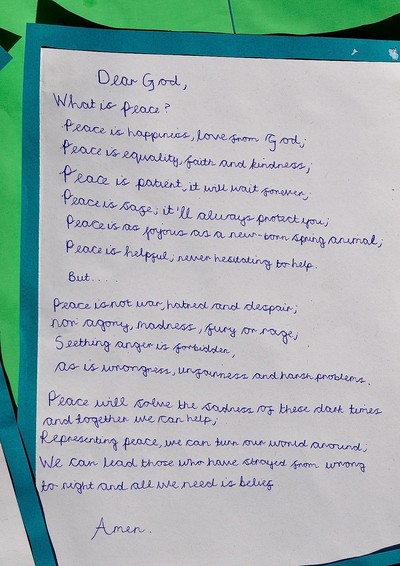 Dear God,
What is peace?
Peace is happiness, love from God;
Peace is equality, faith and kindness;
Peace is patient, it will wait forever;
Peace is safe; it'll always protect you;
Peace is as joyous as a new-born spring animal;
Peace is helpful; never hesitating to help.
But....
Peace is not war, hatred and despair;
nor agony, madness, fury or rage;
Seething anger is forbidden,
as is wrongness, unfairness and harsh problems.
Peace will solve the sadness of these dark times
and together we can help;
Representing peace, we can turn our world around;
We can lead those who have strayed from wrong
to right and all we need is belief
Amen.